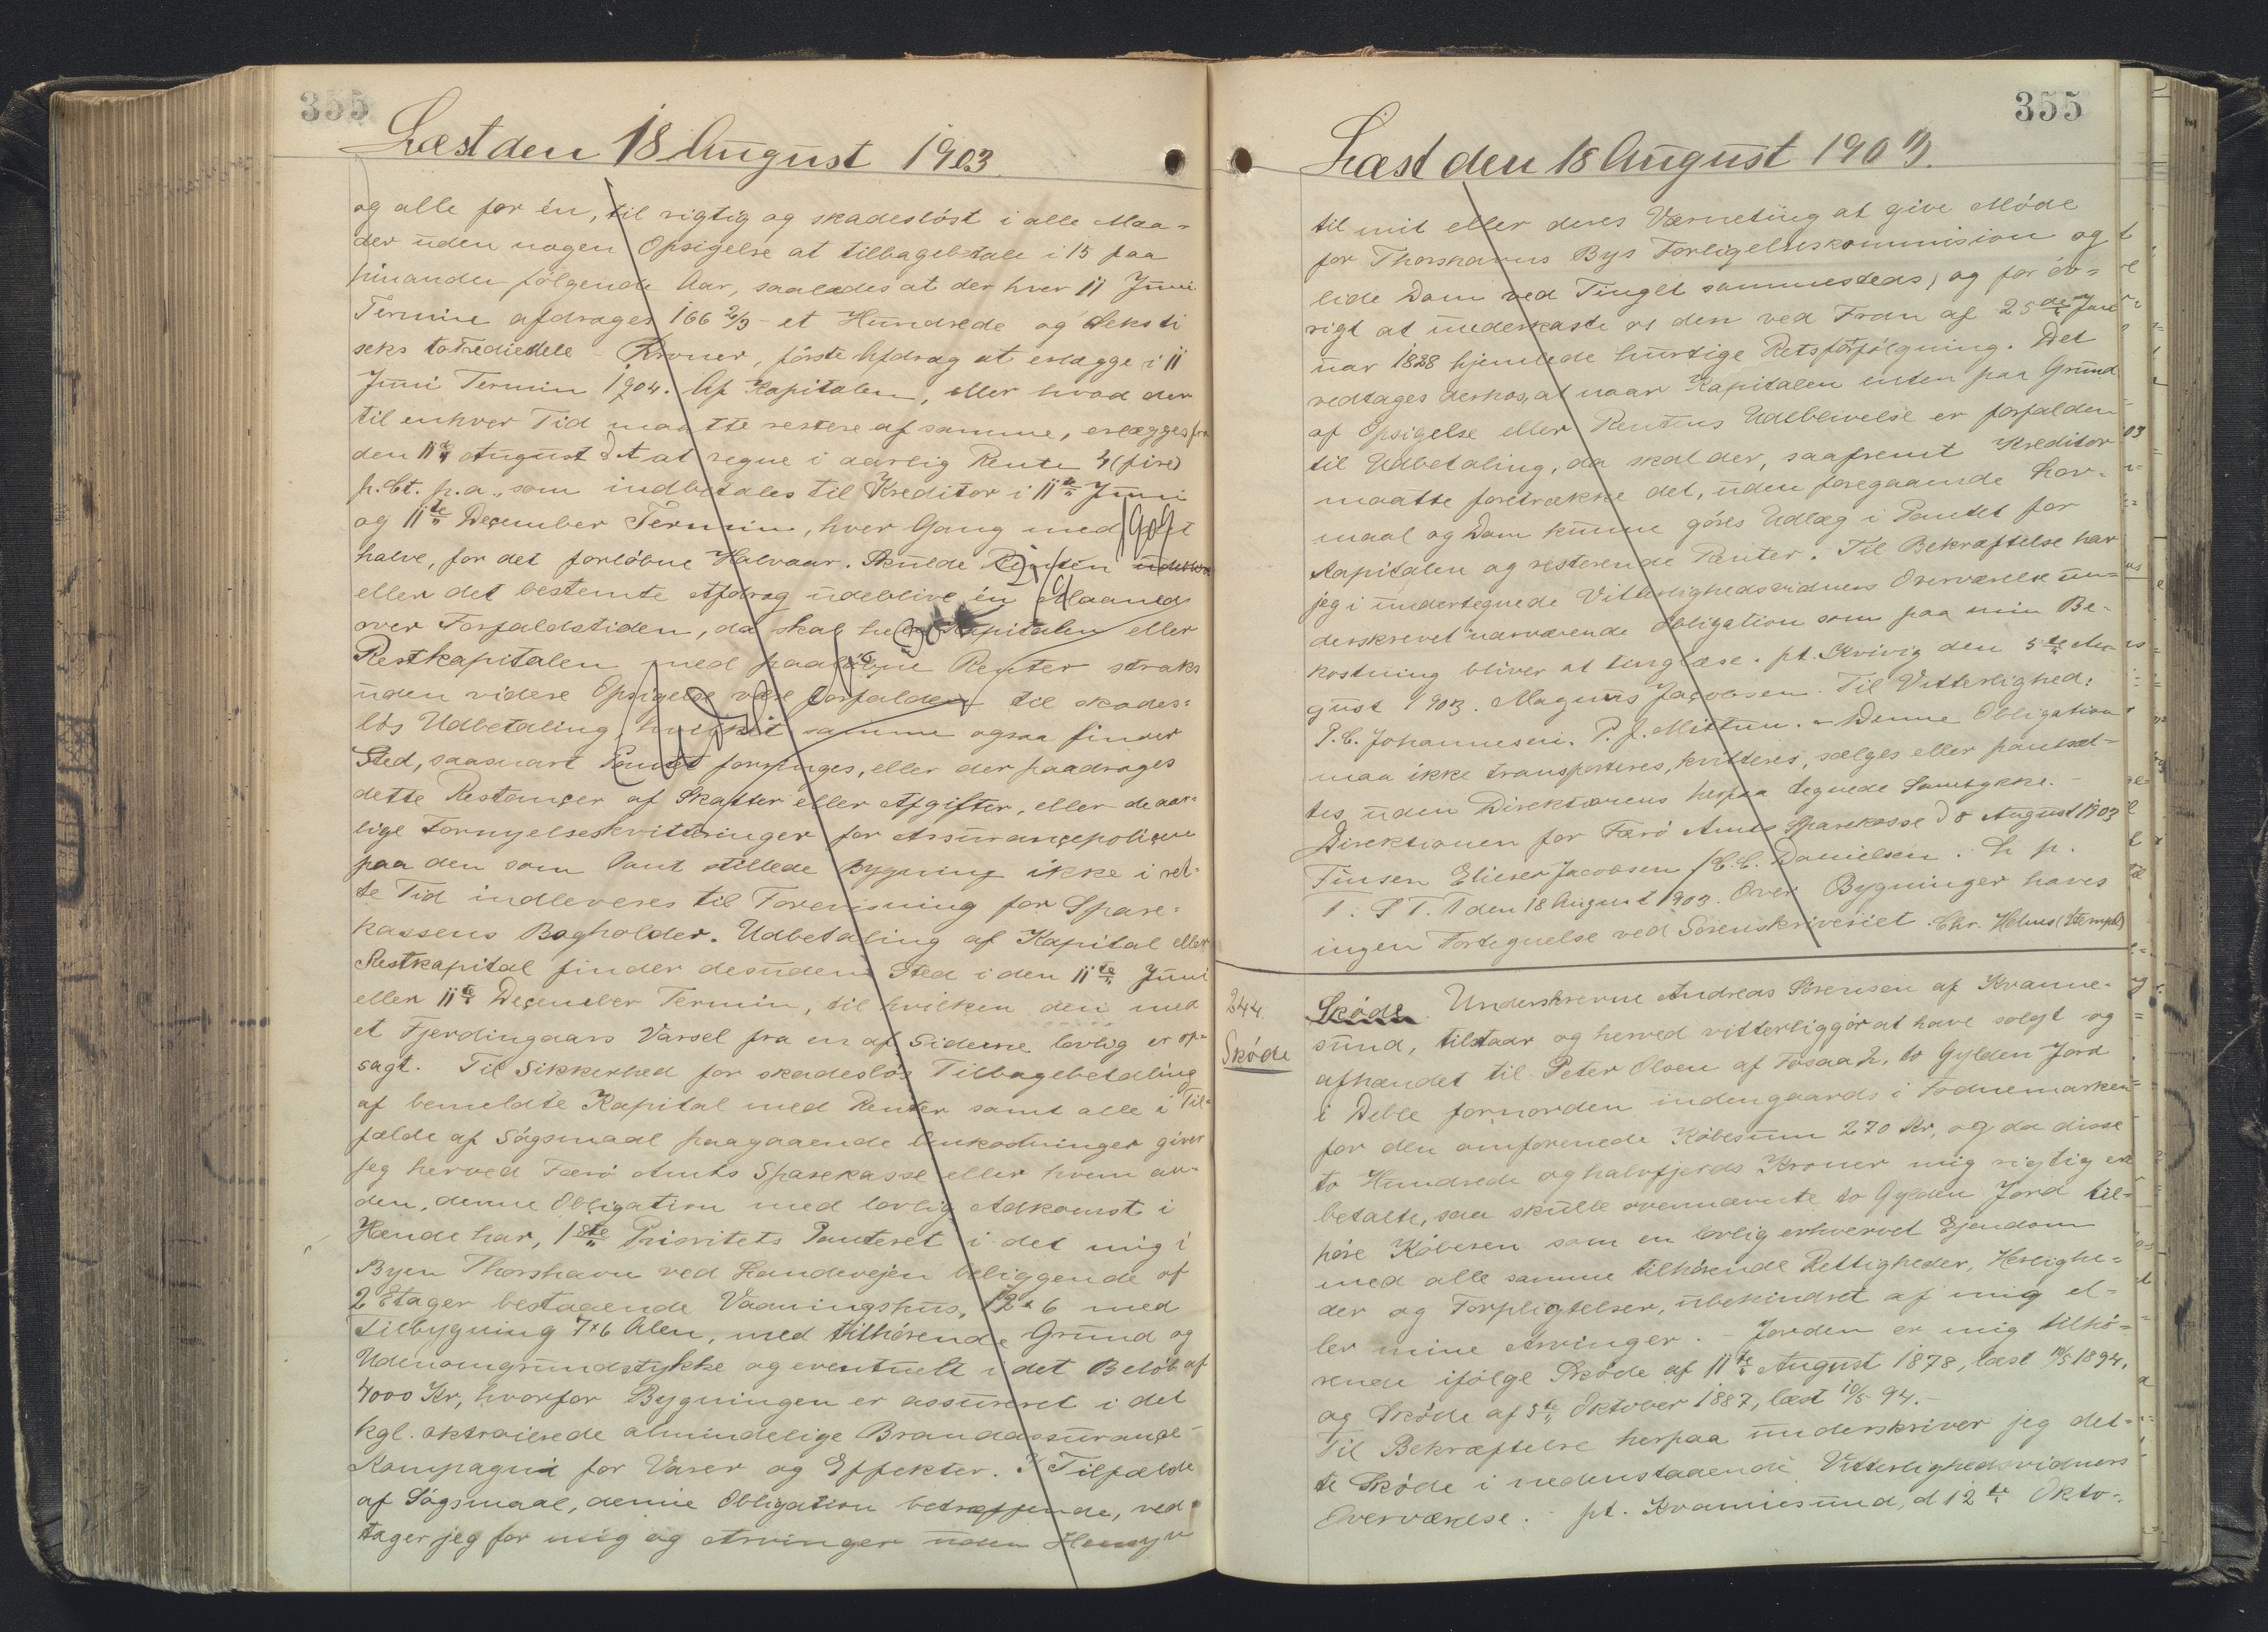 355
Læst den 18 August 1903.
og alle for én, til rigtig og skadesløst i alle Maa=
der uden nogen Opsigelse at tilbagebetale i 15 paa
hinanden følgende Aar, saaledes at der hver 11 Juni
Termin afdrages 166 2/3 - et Hundrede og seksti
seks totrediedele - Kroner, første Afdrag at erlægge i 11
Juni Termin 1904. Af Kapitalen, eller hvad der
til enhver Tid maatte restere af samme, erlægges fra
den 11te August d A at regne i aarlig Rente 4 (fire)
p.Ct. p.a., som indbetales til Kreditor i 11te Juni
og 11te December Termin, hver Gang med det
halve, for det forløbne Halvaar. Skulde Renten
eller det bestemte Afdrag udeblive én Maaned
over Forfaldstiden, da skal hele Kapitalen eller
Restkapitalen med paaløbne Renter straks
uden videre Opsigelse være forfalden til skades=
løs Udbetaling, hvilket samme ogsaa finder
Sted, saasnart Pantet forringes, eller der paadrages
dette Restancer af Skatter eller Afgifter, eller de aar=
lige Fornyelseskvitteringer for Assurancepolicen
paa den som Pant stillede Bygning ikke i ret=
te Tid indleveres til Forevisning for Spare=
kassens Bogholder. Udbetaling af Kapital eller
Restkapital finder desuden Sted i den 11te Juni
eller 11te December Termin, til hvilken den med
et Fjerdingaars Varsel fra en af Siderne lovlig er op=
sagt. Til Sikkerhed for skadesløs Tilbagebetaling
af bemeldte Kapital med Renter samt alle i Til=
fælde af Søgsmaal paagaaende Omkostninger giver
jeg herved Færø Amts Sparekasse eller hvem an=
den, denne Obligation med lovlig Adkomst i
Hænde har, 1ste Prioritets Panteret i det mig i
Byen Thorshavn ved Landevejen beliggende af
2 Etager bestaaende Vaaningshus, 12 x 6 med
Tilbygning 7x6 Alen, med tilhørende Grund og
Udenomgrundstykke og eventuelt i det Beløb af
4000 Kr, hvorfor Bygningen er assureret i det
kgl. oktroierede almindelige Brandassurance-
Kompagni for Varer og Effekter. I Tilfælde
af Søgsmaal, denne Obligation betræffende, ved=
tager jeg for mig og Arvinger uden Hensyn
355
Læst den 18 August 1903.
til mit eller deres Værneting at give Møde
for Thorshavns Bys Forligelseskommission og
lide Dom ved Tinget sammesteds, og for øv=
rigt at underkaste os den ved Frdn af 25de Jan
uar 1828 hjemlede hurtige Retsforfølgning. Det
vedtages derhos, at naar Kapitalen enten paa Grund
af Opsigelse eller Rentens Udeblivelse er forfalden
til Udbetaling, da skal der, saafremt Kreditor
maatte foretrække det, uden foregaaende Lov=
maal og Dom kunne gøres Udlæg i Pantet for
Kapitalen og resterende Renter. Til Bekræftelse har
jeg i undertegnede Vitterlighedsvidners Overværelse un=
derskrevet nærværende Obligation som paa min Be=
kostning bliver at tinglæse. pt. Kvivig den 5te Au=
gust 1903. Magnus Jacobsen. Til Vitterlighed:
P.C. Johannesen. P.J. Mittun. - Denne Obligation
maa ikke transporteres, kvitteres, sælges eller pantsæt=
tes uden Direktionens herpaa tegnede Samtykke. -
Direktionen for Færø Amts Sparekasse d 8 August 1903
Finsen Elieser Jacobsen /C.C. Danielsen.
den 18 August 1903. Over Bygninger haves
ingen Fortegnelse ved Sorenskriveriet. Chr. Helms (Stempel)
244.
Skøde
Skøde. Underskrevne Andreas Sørensen af Kvanne=
sund, tilstaar og herved vitterliggør at have solgt og
afhændet til Peter Olsen af Fosaa 2, to Gylden Jord
i Deble fornorden indengaards i Fodnemarken
for den omforenede Købesum 270 Kr, og da disse
to Hundrede og halvfjerds Kroner mig rigtig ere
betalte, saa skulle ovennævnte to Gylden Jord til=
høre Køberen som en lovlig erhvervet Ejendom
med alle samme tilhørende Rettigheder, Herlighe=
der og Forpligtelser, ubehindret af mig el=
ler mine Arvinger. - Jorden er mig tilhø=
rende ifølge Skøde af 11te August 1878, læst 10/5 1894,
og Skøde af 5te Oktober 1887, læst 10/5 94. -
Til Bekræftelse herpaa underskriver jeg det=
te Skøde i nedenstaaende Vitterlighedsvidners
Overværelse. - pt. Kvannesund, d 12te Okto=